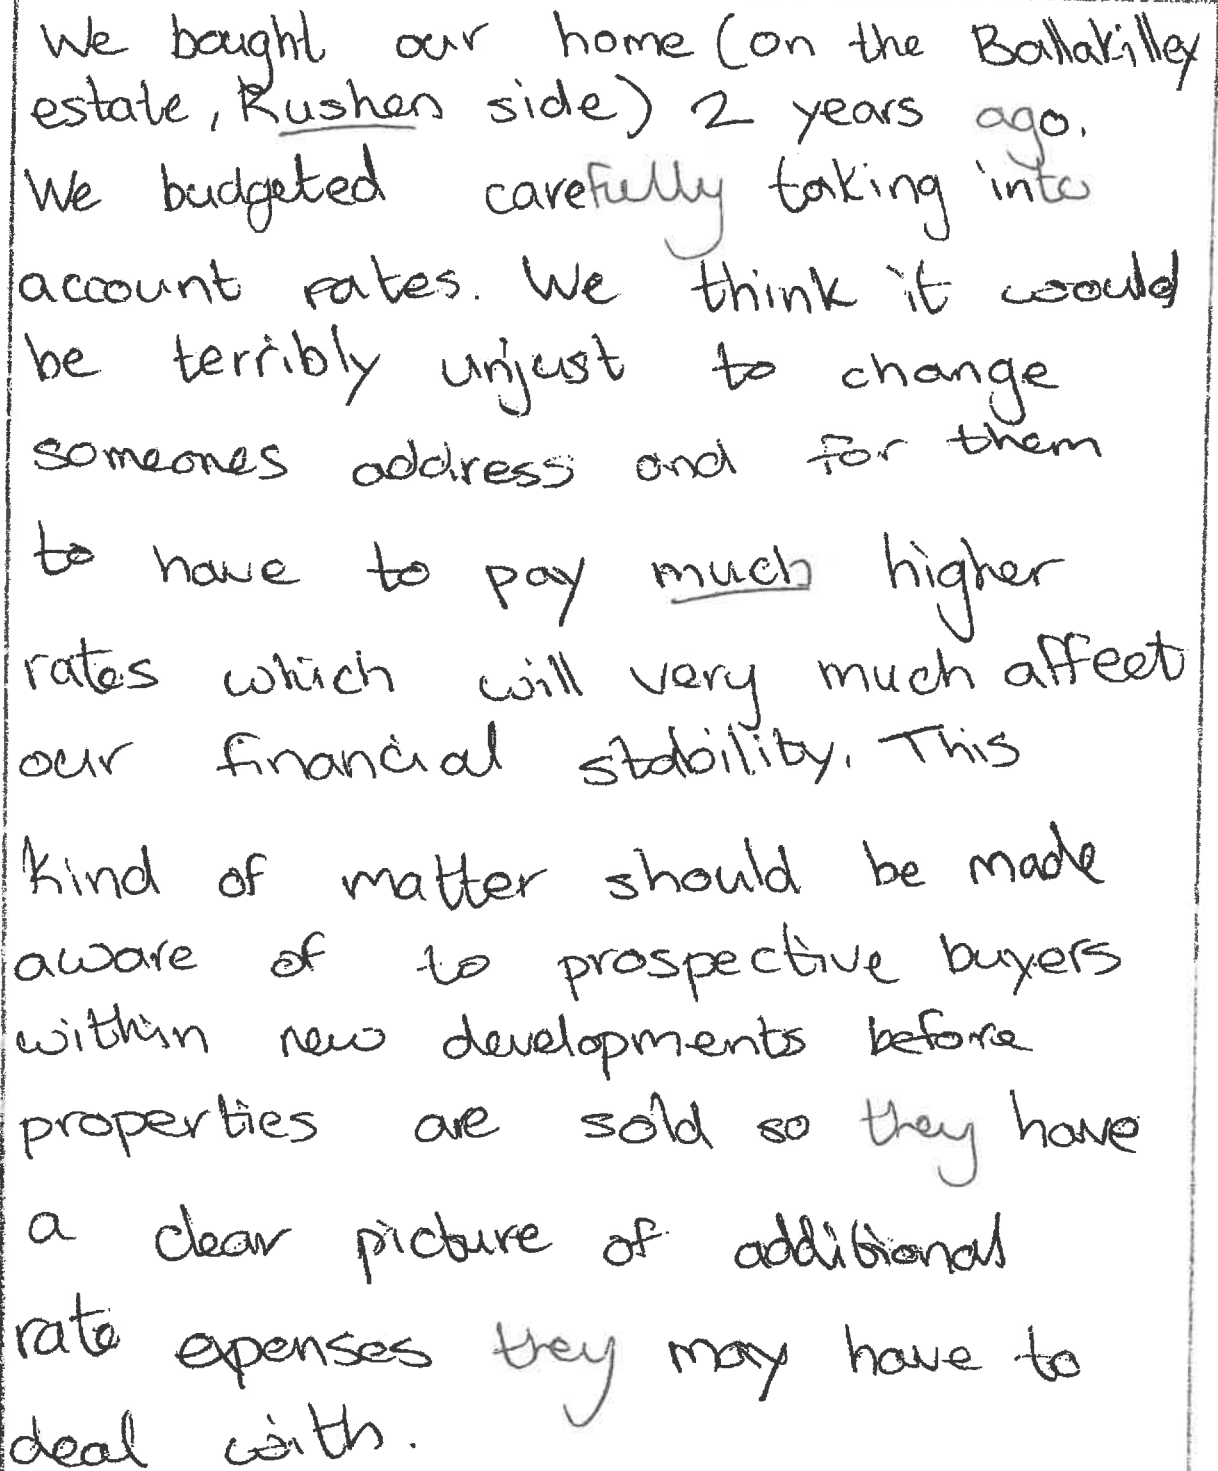 We bought our home (on the Ballakilley
estate, Rushen side) 2 years ago.
We budgeted carefully taking into
account rates. We think it would
be terribly unjust to change
someones address and for them
to have to pay much higher
rates which will very much affect
our financial stability. This
kind of matter should be made
aware of to prospective buyers
within new developments before
properties are sold so they have
a clear picture of additional
rate epenses they may have to
deal with.